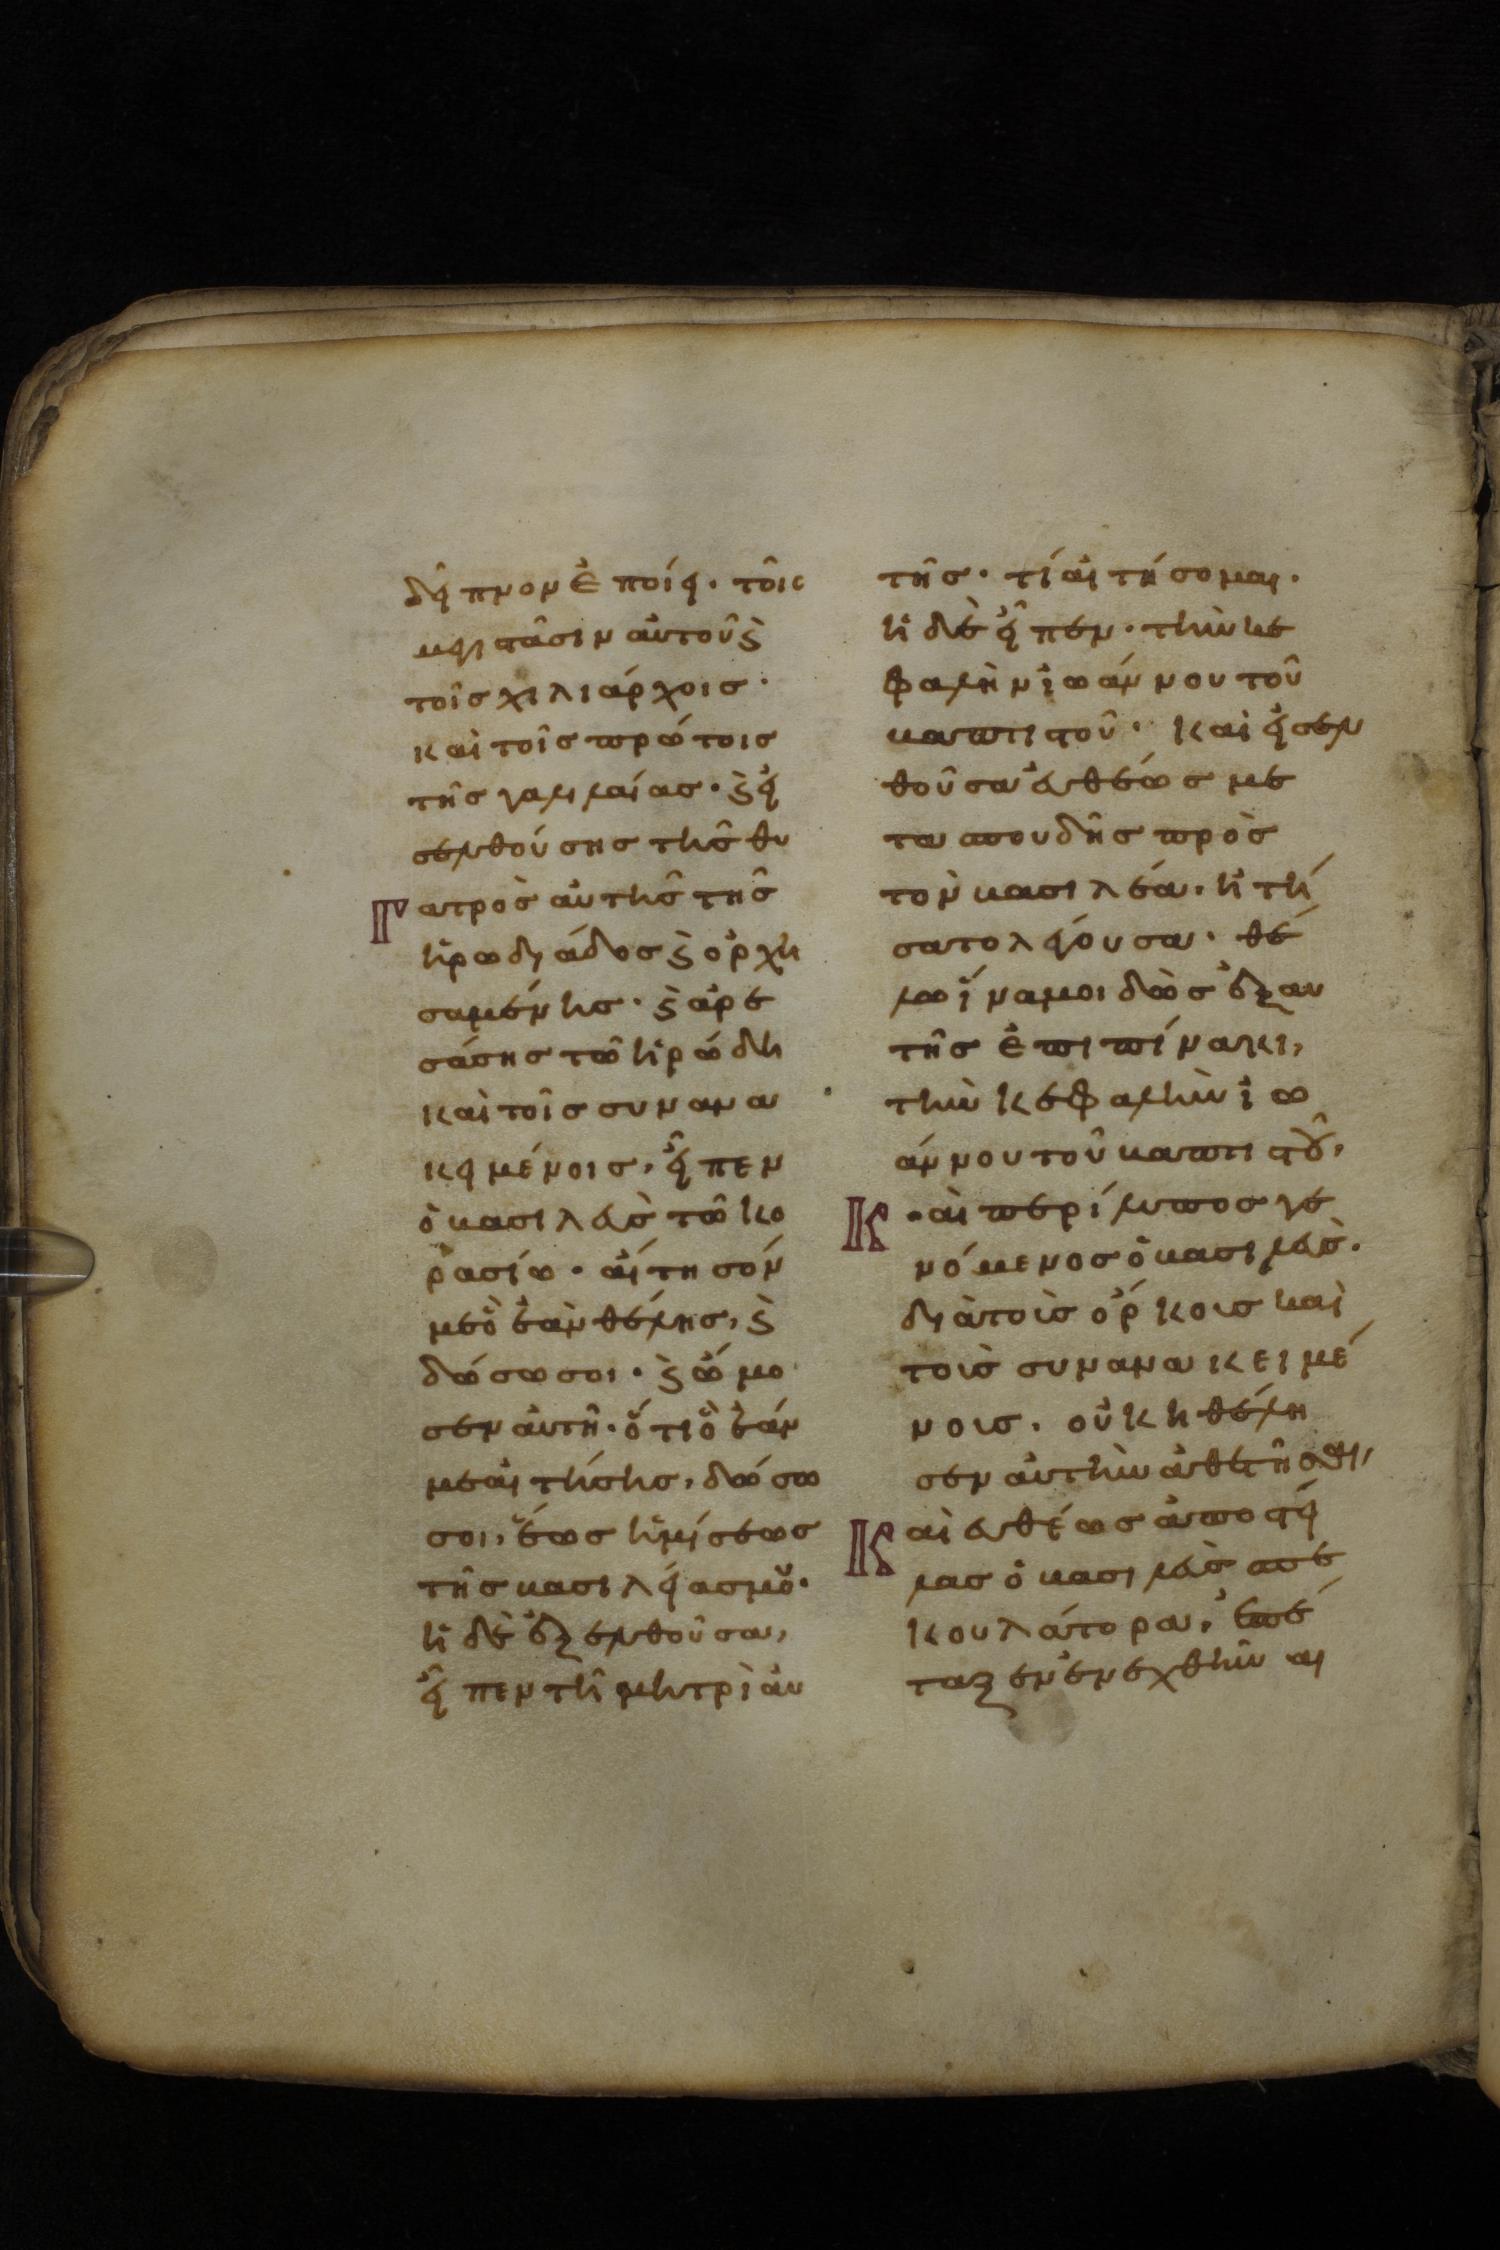 δεῖπνον ἐποίει· τοῖς
μεγιστᾶσιν αὐτοῦ ϗ
τοῖς χιλιάρχοις·
καὶ τοῖς πρώτοις
τῆς γαλιλαίας· ϗ εἰ
σελθούσης τῆς θυ
Γατρὸς αὐτῆς τῆς
ἡρωδιάδος ϗ ὀρχη
σαμένης· ϗ ἀρε
σάσης τῶ ἡρώδη
καὶ τοῖς συνανα
κειμένοις, εἶπεν
ὁ βασιλεὺς τῶ κο
ρασίω· αἴτησόν
με ὃ ἐὰν θέλης, ϗ
δώσω σοι· ϗ ὤμο
σεν αὐτῆ· ὅτι ὃ ἐάν
με αἰτήσης, δώσω
σοι, ἕως ἡμίσεως
τῆς βασιλείας μου·
ἡ δὲ ἐξελθοῦσα,
εἶπεν τῆ μητρὶ αὐ
τῆς· τί αἰτήσομαι·
ἡ δὲ εἶπεν· τὴν κε
φαλὴν ἰωάννου τοῦ
βαπτιστοῦ· καὶ εἰσελ
θοῦσα εὐθέως με
τα σπουδῆς πρὸς
τὸν βασιλέα· ἡτή
σατο λέγουσα· θέ
λω ἵνα μοι δὼς ἐξαυ
τῆς ἐπι πίνακι,
τὴν κεφαλὴν ἰω
άννου τοῦ βαπτιστοῦ,
Κ·αὶ περίλυπος γε
νόμενος ὁ βασιλεὺς·
διὰ τοὶς ὅρκοις καὶ
τοὶς συνανακειμέ
νοις. οὐκ ηθέλη
σεν αὐτὴν ἀθετῆσαι,
Καὶ εὐθέως ἀποστεί
λας ὁ βασιλεὺς σπε
κουλάτορα, ἐπέ
ταξεν ἐνεχθῆναι